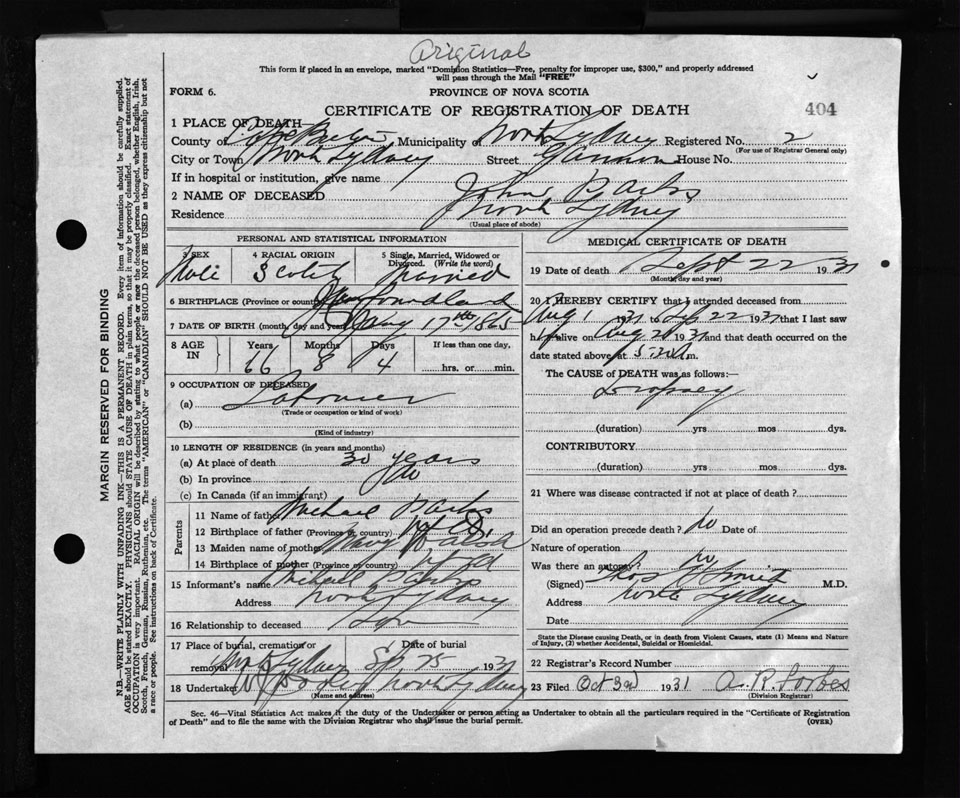 Original
This form if placed in an envelope, marked "Dominion Statistics—Free, penalty for improper use, $300," and properly addressed
will pass through the Mail "FREE"
FORM 6.
PROVINCE OF NOVA SCOTIA
CERTIFICATE OF REGISTRATION OF DEATH
404
1 PLACE OF DEATH
County of Cape Breton Municipality of North Sydney Registered No. 2
(For use of Registrar General only)
City or Town North Sydney Street Gannon House No.
If in hospital or institution, give name
2 NAME OF DECEASED John
Residence North Sydney
(Usual place of abode)
PERSONAL AND STATISTICAL INFORMATION
3 SEX 4 RACIAL ORIGIN 5 Single, Married, Widowed or
Divorced. (Write the word)
Male Married
6 BIRTHPLACE (Province or country) Newfoundland
7 DATE OF BIRTH (month, day and year) 17th 1865
8 AGE IN Years Months Days If less than one day,
66 8 4 hrs. or min.
9 OCCUPATION OF DECEASED
(a) Labourer
(Trade or occupation or kind of work)
(b)
(Kind of industry)
10 LENGTH OF RESIDENCE (in years and months)
(a) At place of death 30 years
(b) In province do
(c) In Canada (if an immigrant)
Parents
11 Name of father Michael
12 Birthplace of father (Province or country) Nfld
13 Maiden name of mother Mary
14 Birthplace of mother (Province or country) Nfld
15 Informant's name Michael
Address North Sydney
16 Relationship to deceased Son
17 Place of burial, cremation or Date of burial
removal North Sydney Sep 25 1931
18 Undertaker North Sydney
(Name and address)
MEDICAL CERTIFICATE OF DEATH
19 Date of death Sept 22 1931
(Month, day and year)
20 I HEREBY CERTIFY that I attended deceased from
Aug 1 1931 to Sep 22 1931 that I last saw
h alive on Aug 20 1931 and that death occurred on the
date stated above at m.
The CAUSE of DEATH was as follows:—
Dropsey
(duration) yrs mos dys.
CONTRIBUTORY
(duration) yrs mos dys.
21 Where was disease contracted if not at place of death?
Did an operation precede death? No Date of
Nature of operation
Was there an autopsy? no
(Signed) M.D.
Address North Sydney
Date
State the Disease causing Death, or in death from Violent Causes, state (1) Means and Nature
of Injury, (2) whether Accidental, Suicidal or Homicidal.
22 Registrar's Record Number
23 Filed Oct 3rd 1931 A. R. Forbes
(Division Registrar)
Sec. 46—Vital Statistics Act makes it the duty of the Undertaker or person acting as Undertaker to obtain all the particulars required in the "Certificate of Registration
of Death" and to file the same with the Division Registrar who shall issue the burial permit.
(OVER)
MARGIN RESERVED FOR BINDING
N.B.—WRITE PLAINLY WITH UNFADING INK—THIS IS A PERMANENT RECORD. Every item of information should be carefully supplied.
AGE should be stated EXACTLY. PHYSICIANS should STATE CAUSE OF DEATH in plain terms, so that it may be properly classified. Exact statement of
OCCUPATION is very important. RACIAL ORIGIN will be described by stating to what people or race the deceased person belonged, whether English, Irish,
Scotch, French, German, Russian, Ruthenian, etc. The terms "AMERICAN" or "CANADIAN" SHOULD NOT BE USED as they express citizenship but not
a race or people. See instructions on back of Certificate.